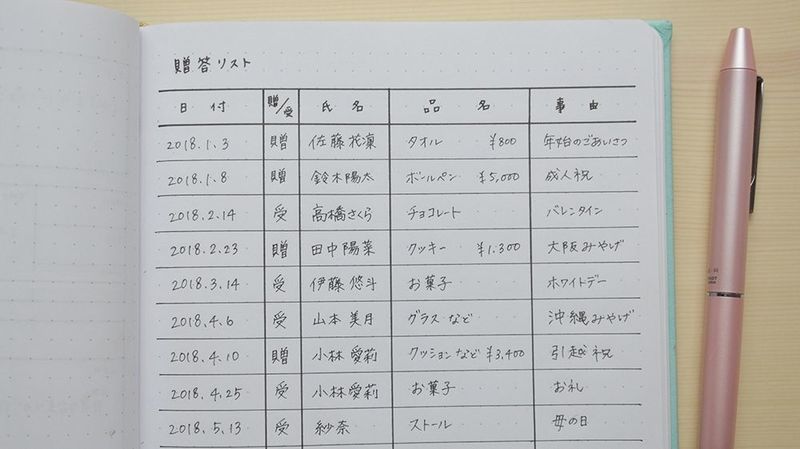 贈答リスト
日付 贈/受 氏名 品名 事由
2018.1.3 贈 佐藤花凜 タオル ¥800 年始のごあいさつ
2018.1.8 贈 鈴木陽太 ボールペン ¥5,000 成人祝
2018.2.14 受 高橋さくら チョコレート バレンタイン
2018.2.23 贈 田中陽菜 クッキー ¥1,300 大阪みやげ
2018.3.14 受 伊藤悠斗 お菓子 ホワイトデー
2018.4.6 受 山本美月 グラスなど 沖縄みやげ
2018.4.10 贈 小林愛莉 クッションなど ¥3,400 引越祝
2018.4.25 受 小林愛莉 お菓子 お礼
2018.5.13 受 紗奈 ストール 母の日